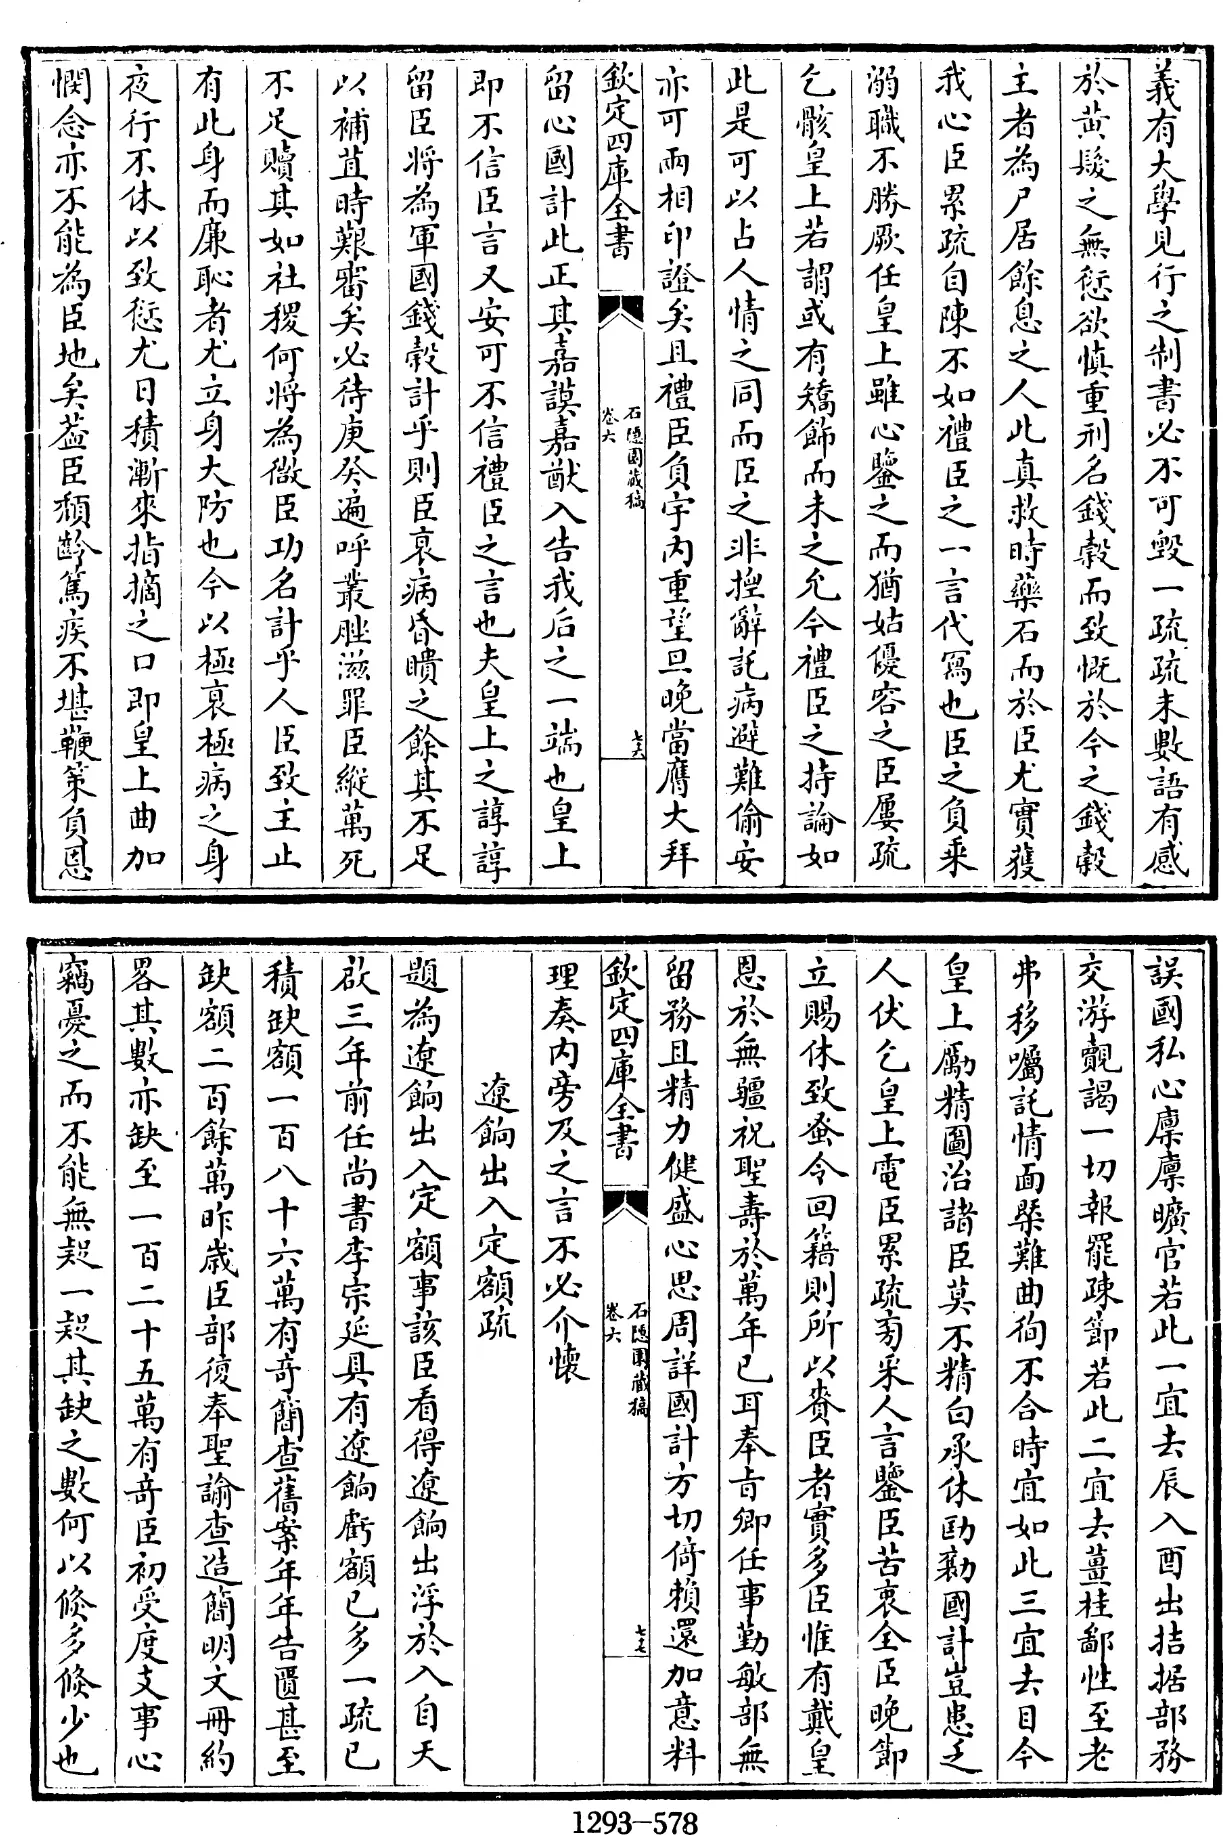 義有大學見行之制書必不可毀一疏疏末數語有感
於黃髮之無愆欲慎重刑名錢穀而致慨於今之錢穀
主者為尸居餘息之人此真救時藥石而於臣尤實獲
我心臣累疏自陳不如禮臣之一言代寫也臣之負乘
溺職不勝厥任皇上雖心鑒之而猶姑優容之臣屢疏
乞骸皇上若謂或有矯飾而未之允今禮臣之持論如
此是可以占人情之同而臣之非揑辭託病避難偷安
亦可兩相印證矣且禮臣負宇內重望旦晚當膺大拜
欽定四庫全書
石隱園藏稿
卷六
七六
留心國計此正其嘉謨嘉猷入告我后之一端也皇上
即不信臣言又安可不信禮臣之言也夫皇上之諄諄
留臣將為軍國錢穀計乎則臣衰病昏瞶之餘其不足
以補苴時艱審矣必待庚癸遍呼叢脞滋罪臣縱萬死
不足贖其如社稷何將為微臣功名計乎人臣致主止
有此身而廉恥者尤立身大防也今以極衰極病之身
夜行不休以致愆尤日積漸來指摘之口即皇上曲加
憫念亦不能為臣地矣葢臣頽齡篤疾不堪鞭策負恩
誤國私心凜凜曠官若此一宜去辰入酉出拮据部務
交游覿謁一切報罷疎節若此二宜去薑桂鄙性至老
弗移囑託情面槩難曲徇不合時宜如此三宜去目今
皇上勵精圖治諸臣莫不精白承休劻勷國計豈患乏
人伏乞皇上電臣累疏旁采人言鑒臣苦衷全臣晚節
立賜休致蚤令回籍則所以賚臣者實多臣惟有戴皇
恩於無疆祝聖壽於萬年已耳奉㫖卿任事勤敏部無
留務且精力健盛心思周詳國計方切倚賴還加意料
欽定四庫全書
石隱園藏稿
卷六
七七
理奏內旁及之言不必介懷
遼餉出入定額疏
題為遼餉出入定額事該臣看得遼餉出浮於入自天
啟三年前任尚書李宗延具有遼餉虧額已多一疏已
積缺額一百八十六萬有奇簡查舊案年年告匱甚至
缺額二百餘萬昨歲臣部復奉聖諭查造簡明文冊約
畧其數亦缺至一百二十五萬有奇臣初受度支事心
竊憂之而不能無疑一疑其缺之數何以倏多倏少也
1293-578